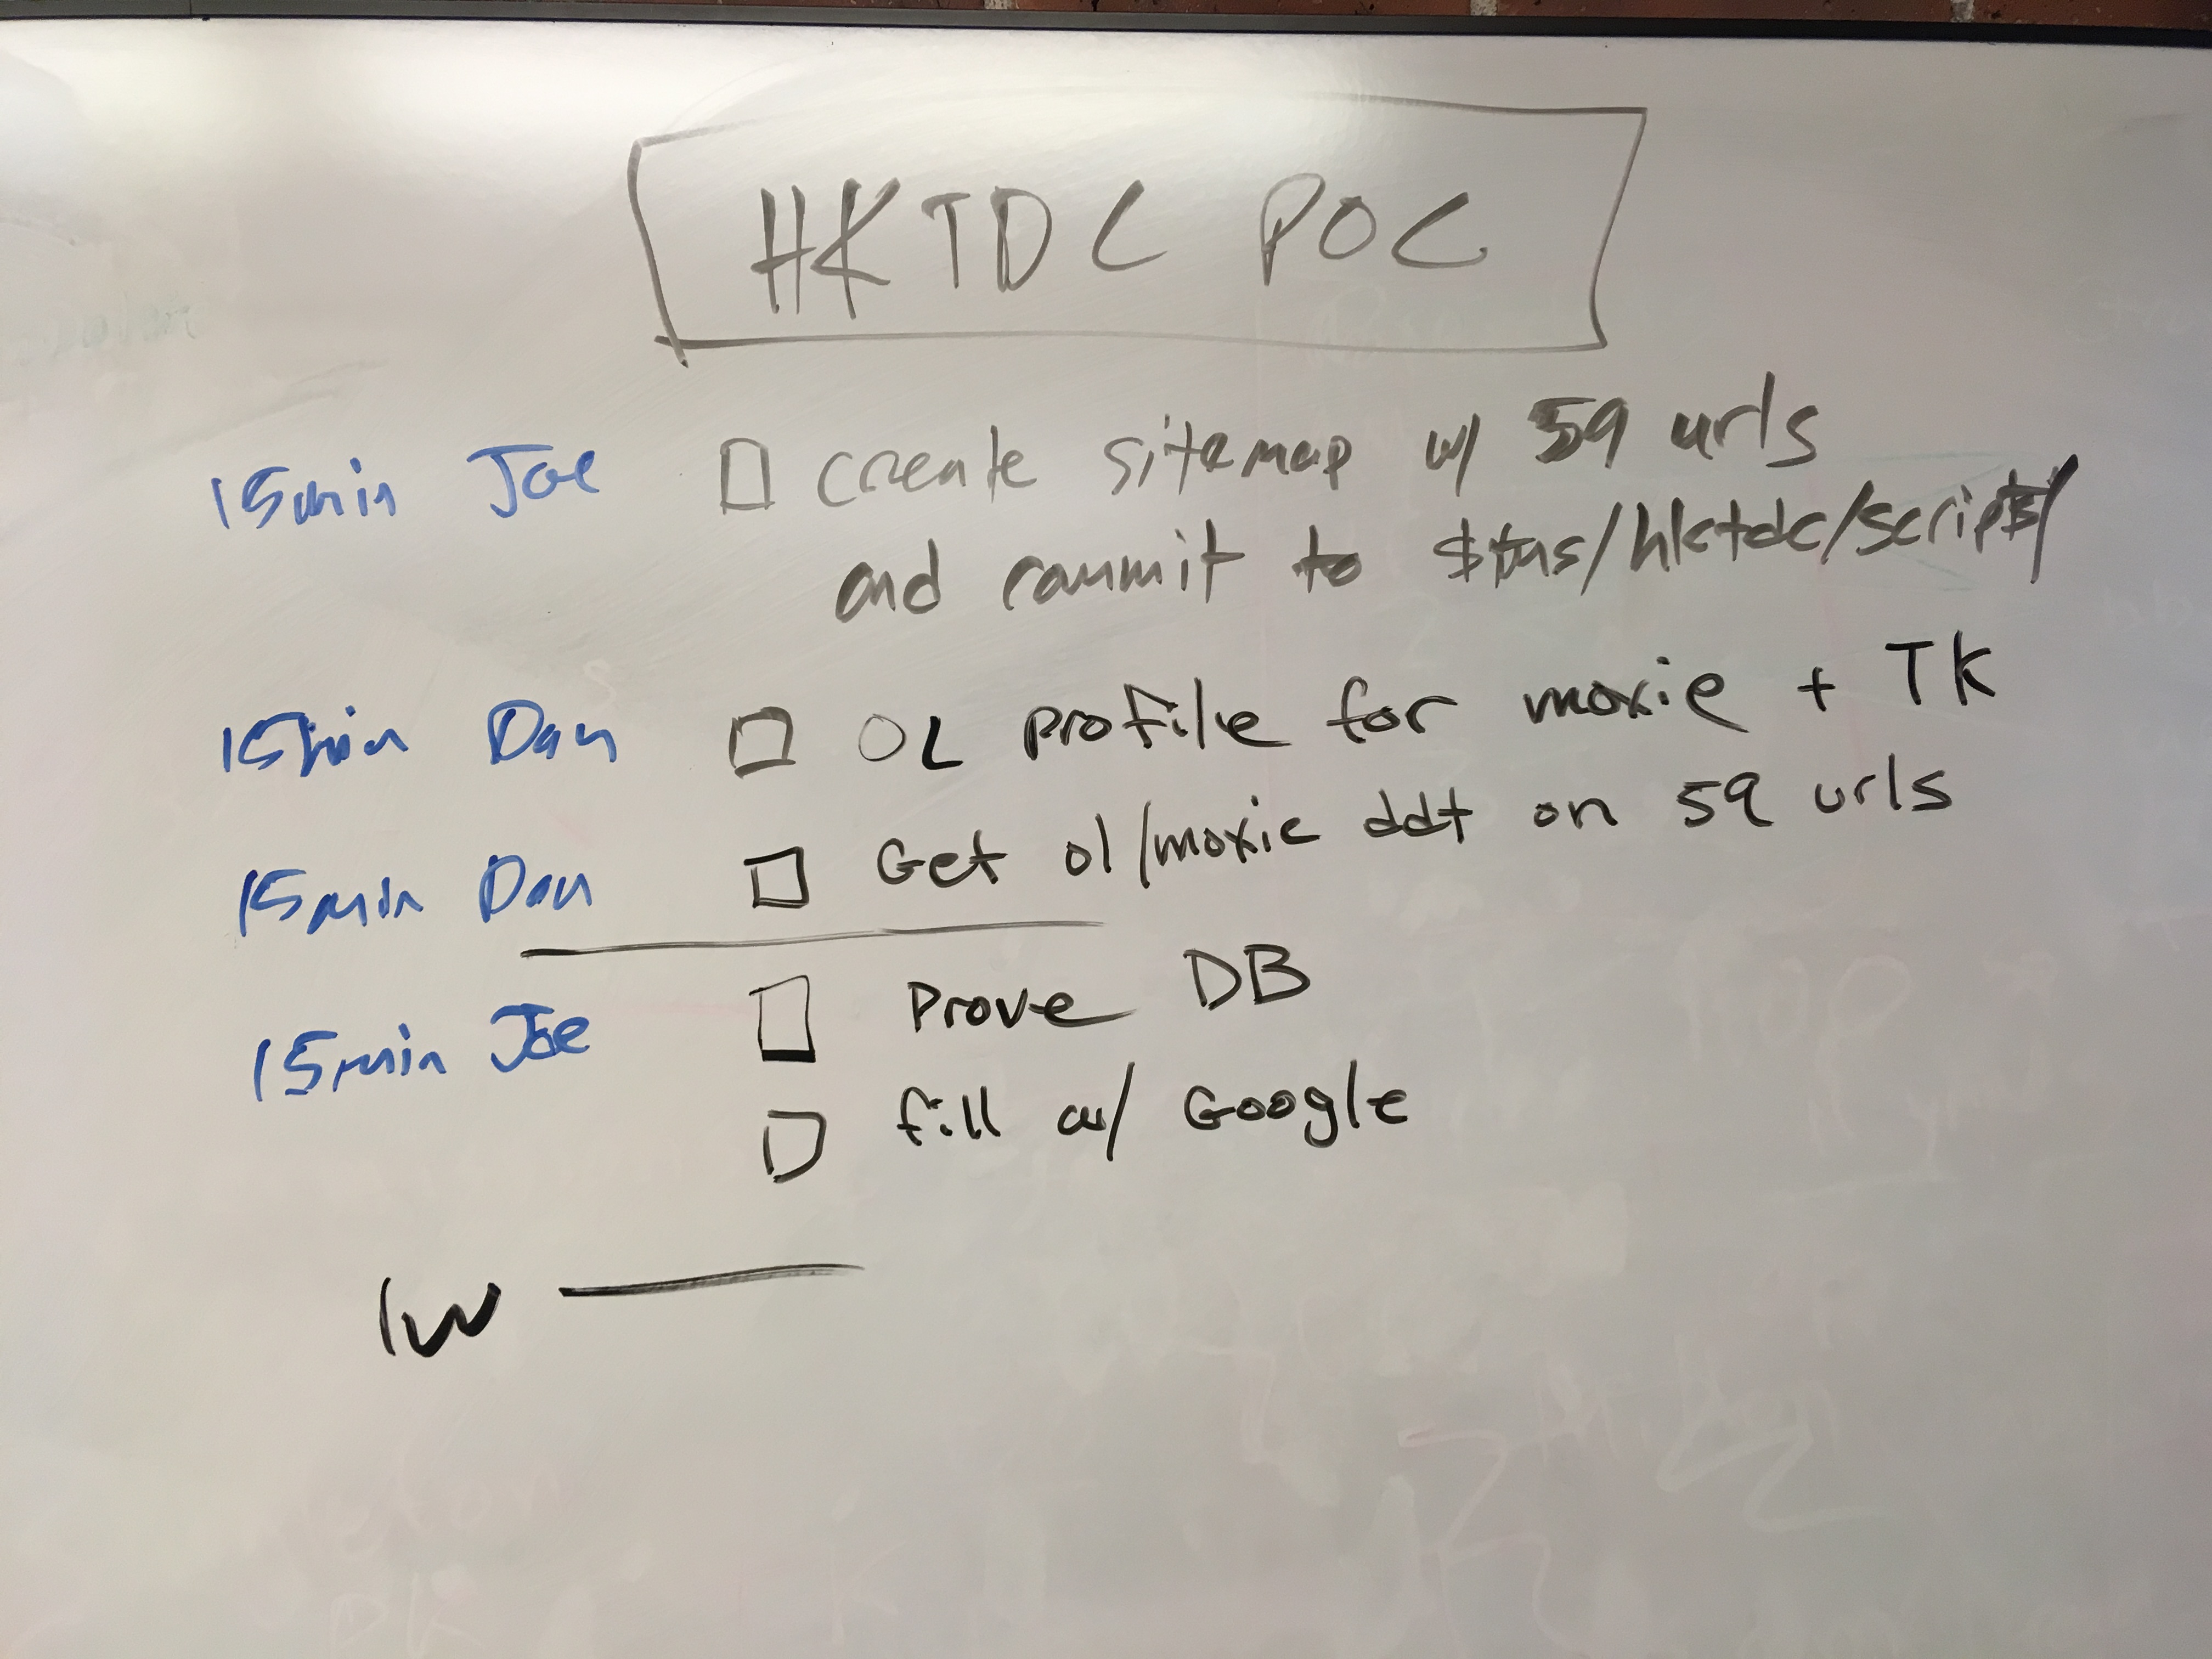 HKTDC POC
15min Joe □ create sitemap w/ 59 urls
and commit to $tms/hktdc/scripts/
15min Dan □ OL profile for moxie + TK
15min Dan □ Get ol/moxie ddt on 59 urls
15min Joe □ Prove DB
□ fill w/ Google
1w